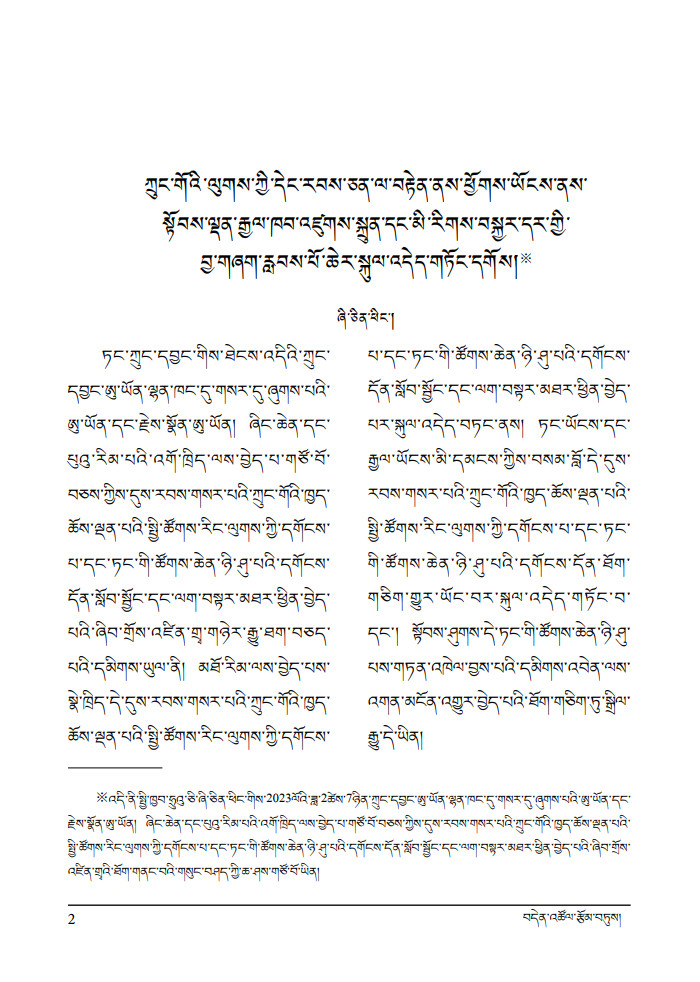 ཀྲུང་གོའི་ལུགས་ཀྱི་དེང་རབས་ཅན་ལ་བརྟེན་ནས་ཕྱོགས་ཡོངས་ནས་
སྟོབས་ལྡན་རྒྱལ་ཁབ་འཛུགས་སྐྲུན་དང་མི་རིགས་བསྐྱར་དར་གྱི་
བྱ་གཞག་རླབས་པོ་ཆེར་སྐུལ་འདེད་གཏོང་དགོས།※
ཞི་ཅིན་ཕིང་།
ཏང་ཀྲུང་དབྱང་གིས་ཐེངས་འདིའི་ཀྲུང་
དབྱང་ཨུ་ཡོན་ལྷན་ཁང་དུ་གསར་དུ་ཞུགས་པའི་
ཨུ་ཡོན་དང་རྗེས་སྣོན་ཨུ་ཡོན། ཞིང་ཆེན་དང་
པུའུ་རིམ་པའི་འགོ་ཁྲིད་ལས་བྱེད་པ་གཙོ་བོ་
བཅས་ཀྱིས་དུས་རབས་གསར་པའི་ཀྲུང་གོའི་ཁྱད་
ཆོས་ལྡན་པའི་སྤྱི་ཚོགས་རིང་ལུགས་ཀྱི་དགོངས་
པ་དང་ཏང་གི་ཚོགས་ཆེན་ཉི་ཤུ་པའི་དགོངས་
དོན་སློབ་སྦྱོང་དང་ལག་བསྟར་མཐར་ཕྱིན་བྱེད་
པའི་ཞིབ་གྲོས་འཛིན་གྲྭ་གཉེར་རྒྱུ་ཐག་བཅད་
པའི་དམིགས་ཡུལ་ནི། མཐོ་རིམ་ལས་བྱེད་པས་
སྣེ་ཁྲིད་དེ་དུས་རབས་གསར་པའི་ཀྲུང་གོའི་ཁྱད་
ཆོས་ལྡན་པའི་སྤྱི་ཚོགས་རིང་ལུགས་ཀྱི་དགོངས་
པ་དང་ཏང་གི་ཚོགས་ཆེན་ཉི་ཤུ་པའི་དགོངས་
དོན་སློབ་སྦྱོང་དང་ལག་བསྟར་མཐར་ཕྱིན་བྱེད་
པར་སྐུལ་འདེད་བཏང་ནས། ཏང་ཡོངས་དང་
རྒྱལ་ཡོངས་མི་དམངས་ཀྱིས་བསམ་བློ་དེ་དུས་
རབས་གསར་པའི་ཀྲུང་གོའི་ཁྱད་ཆོས་ལྡན་པའི་
སྤྱི་ཚོགས་རིང་ལུགས་ཀྱི་དགོངས་པ་དང་ཏང་
གི་ཚོགས་ཆེན་ཉི་ཤུ་པའི་དགོངས་དོན་ཐོག་
གཅིག་གྱུར་ཡོང་བར་སྐུལ་འདེད་གཏོང་བ་
དང་། སྟོབས་ཤུགས་དེ་ཏང་གི་ཚོགས་ཆེན་ཉི་ཤུ་
པས་གཏན་འཁེལ་བྱས་པའི་དམིགས་འབེན་ལས་
འགན་མངོན་འགྱུར་བྱེད་པའི་ཐོག་གཅིག་ཏུ་སྒྲིལ་
རྒྱུ་དེ་ཡིན།
※འདི་ནི་སྤྱི་ཁྱབ་ཧྲུའུ་ཅི་ཞི་ཅིན་ཕིང་གིས་2023ལོའི་ཟླ་2ཚེས་7ཉིན་ཀྲུང་དབྱང་ཨུ་ཡོན་ལྷན་ཁང་དུ་གསར་དུ་ཞུགས་པའི་ཨུ་ཡོན་དང་
རྗེས་སྣོན་ཨུ་ཡོན། ཞིང་ཆེན་དང་པུའུ་རིམ་པའི་འགོ་ཁྲིད་ལས་བྱེད་པ་གཙོ་བོ་བཅས་ཀྱིས་དུས་རབས་གསར་པའི་ཀྲུང་གོའི་ཁྱད་ཆོས་ལྡན་པའི་
སྤྱི་ཚོགས་རིང་ལུགས་ཀྱི་དགོངས་པ་དང་ཏང་གི་ཚོགས་ཆེན་ཉི་ཤུ་པའི་དགོངས་དོན་སློབ་སྦྱོང་དང་ལག་བསྟར་མཐར་ཕྱིན་བྱེད་པའི་ཞིབ་གྲོས་
འཛིན་གྲྭའི་ཐོག་གནང་བའི་གསུང་བཤད་ཀྱི་ཆ་ཤས་གཙོ་བོ་ཡིན།
2 བདེན་འཚོལ་རྩོམ་བཏུས།